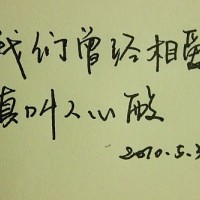 我们曾经相爱
真叫人心酸
2010.5.3